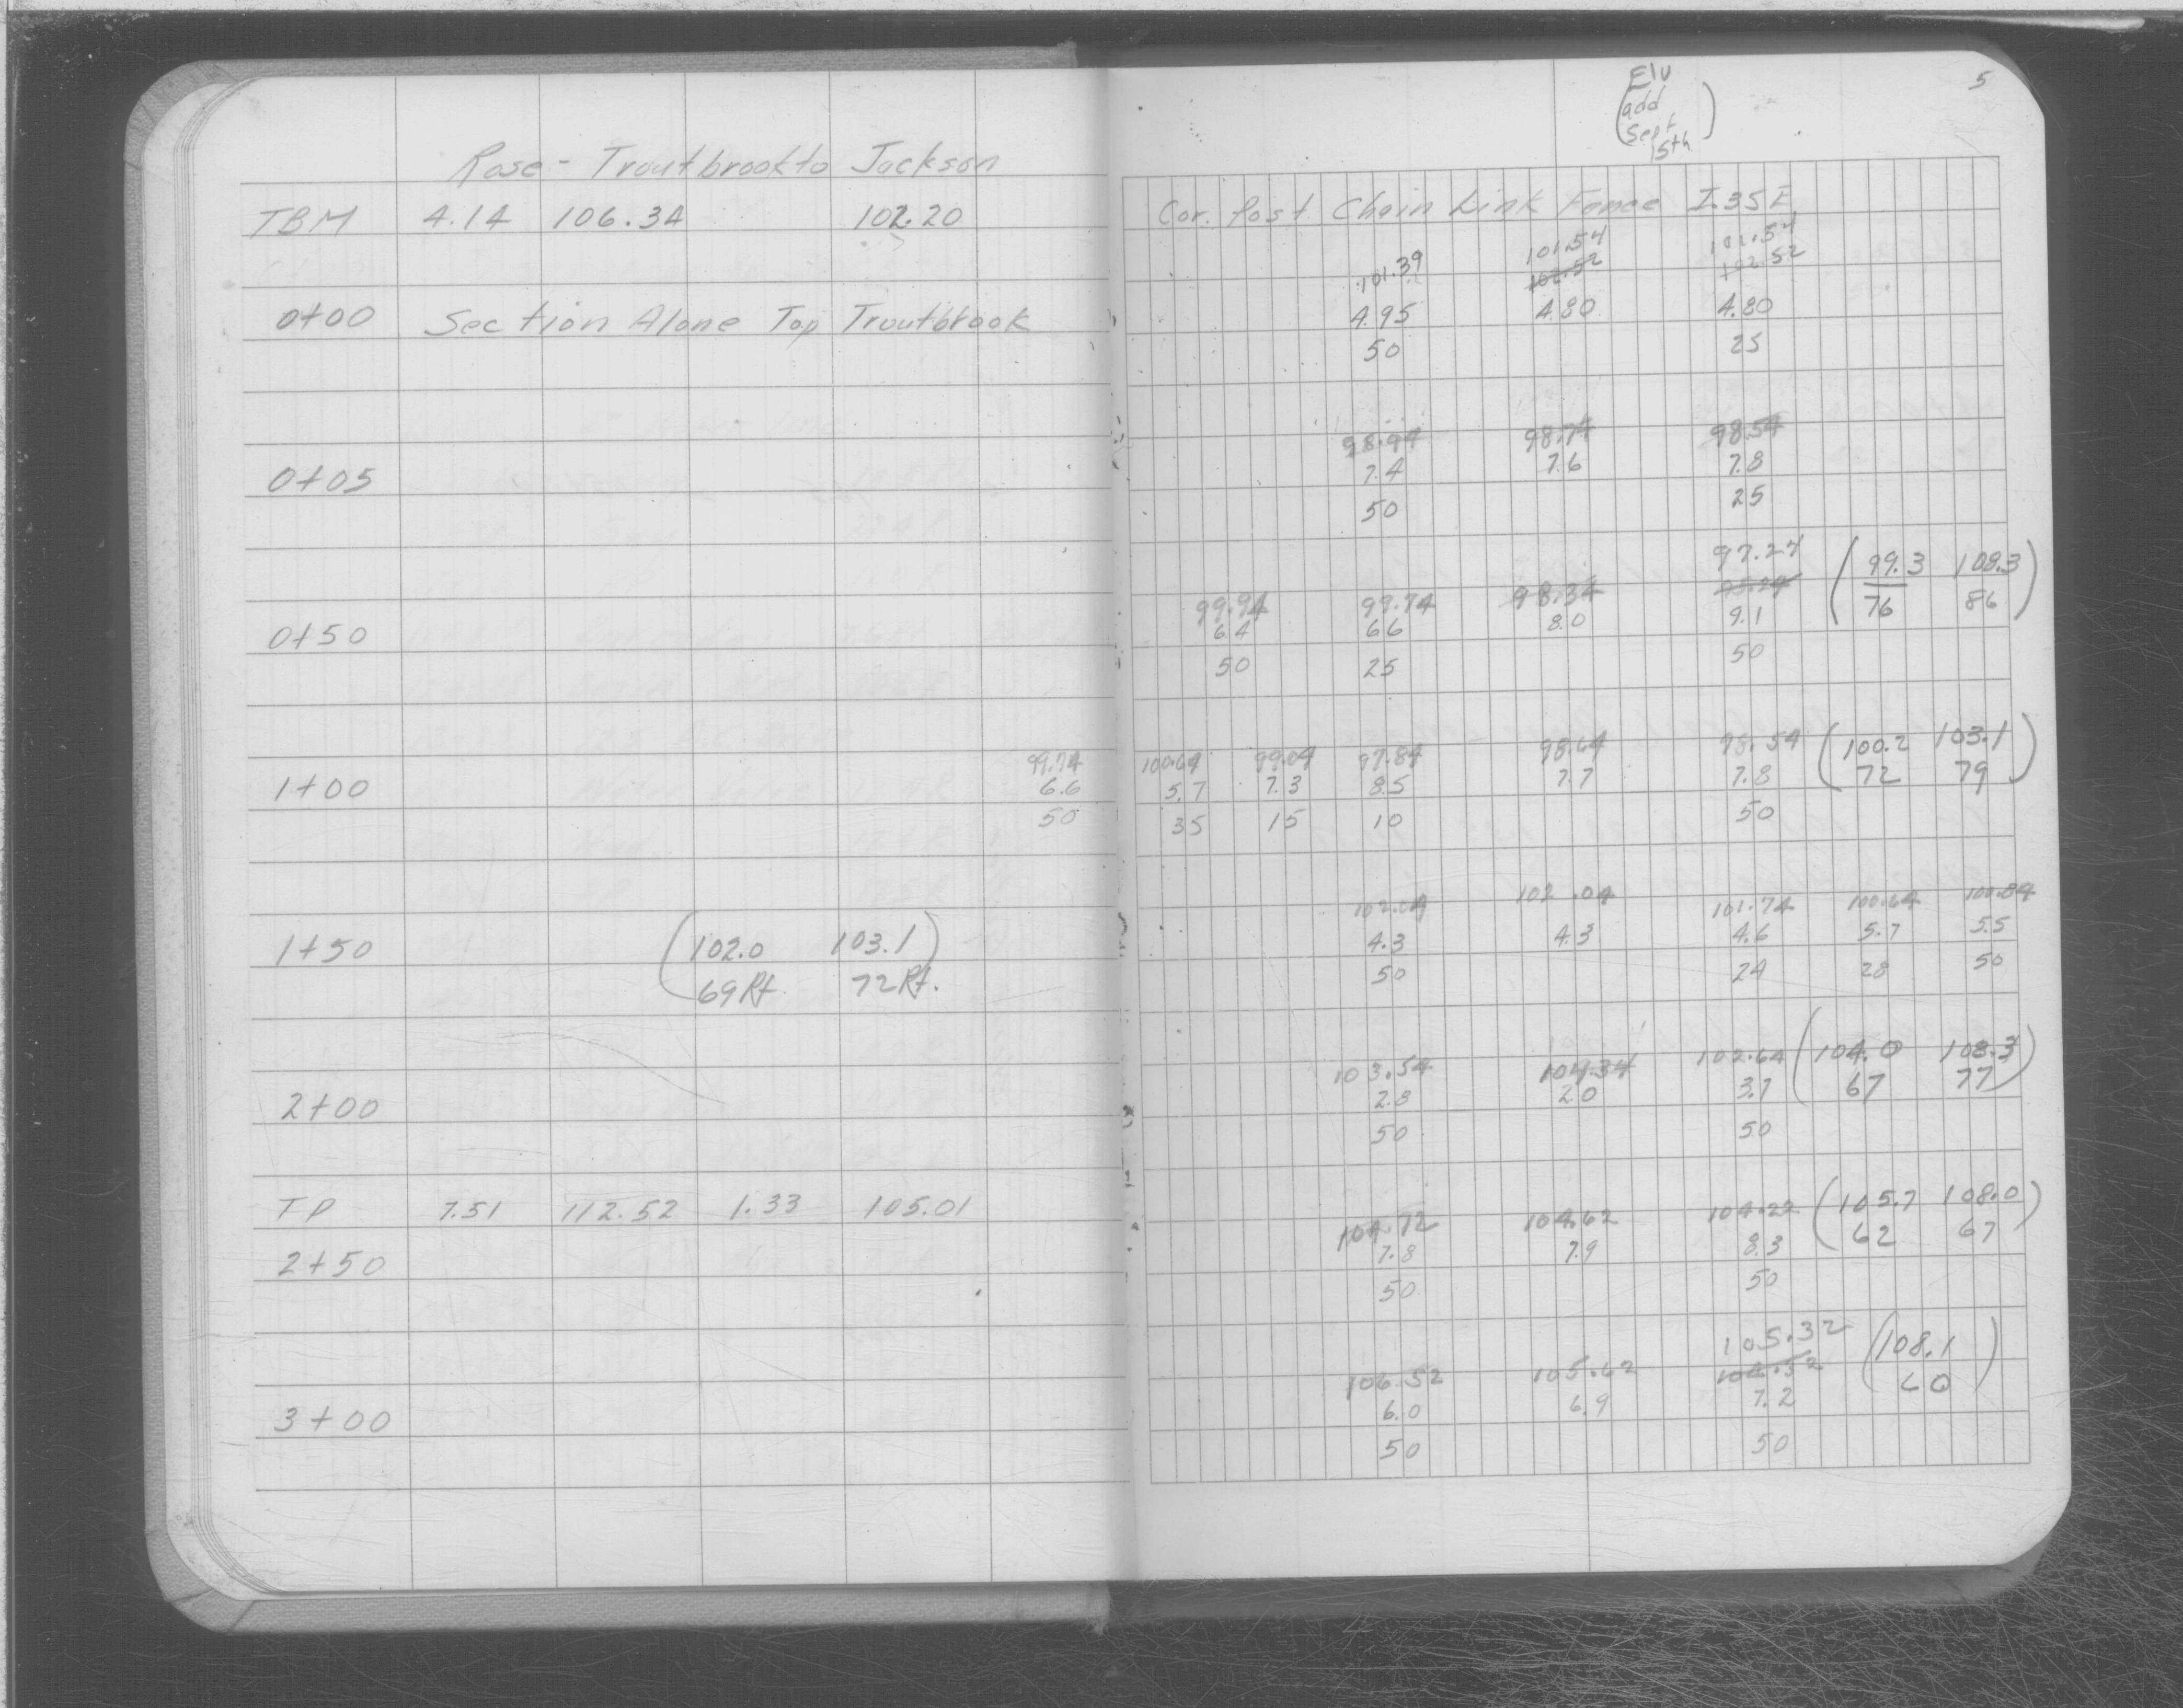 Elv
(add
Sept
15th)
5
Rose - Troutbrook to Jackson
TBM 4.14 106.34 102.20 Cor. Post Chain Link Fence I.35E
101.39 101.54 102.52 101.54 102.52
0+00 Section Alone Top Troutbrook 4.95 4.80 4.80
50 25
98.94 98.74 98.54
0+05 7.4 7.6 7.8
50 25
97.24 (99.3 108.3)
99.94 99.74 98.34 76 86
0+50 6.4 6.6 8.0 9.1
50 25 50
99.74 100.64 99.04 97.84 98.64 98.54 (100.2 103.1)
1+00 6.6 5.7 7.3 8.5 7.7 7.8 72 79
50 35 15 10 50
102.04 102.04 101.74 100.64 100.84
1+50 (102.0 103.1) 4.3 4.3 4.6 5.7 5.5
69 Rt. 72 Rt. 50 24 28 50
103.54 104.34 102.64 (104.0 108.3)
2+00 2.8 2.0 3.7 67 77
50 50
TP 7.51 112.52 1.33 105.01 104.72 104.62 104.22 (105.7 108.0)
2+50 7.8 7.9 8.3 62 67
50 50
105.32 (108.1)
106.52 105.62 60
3+00 6.0 6.9 7.2
50 50